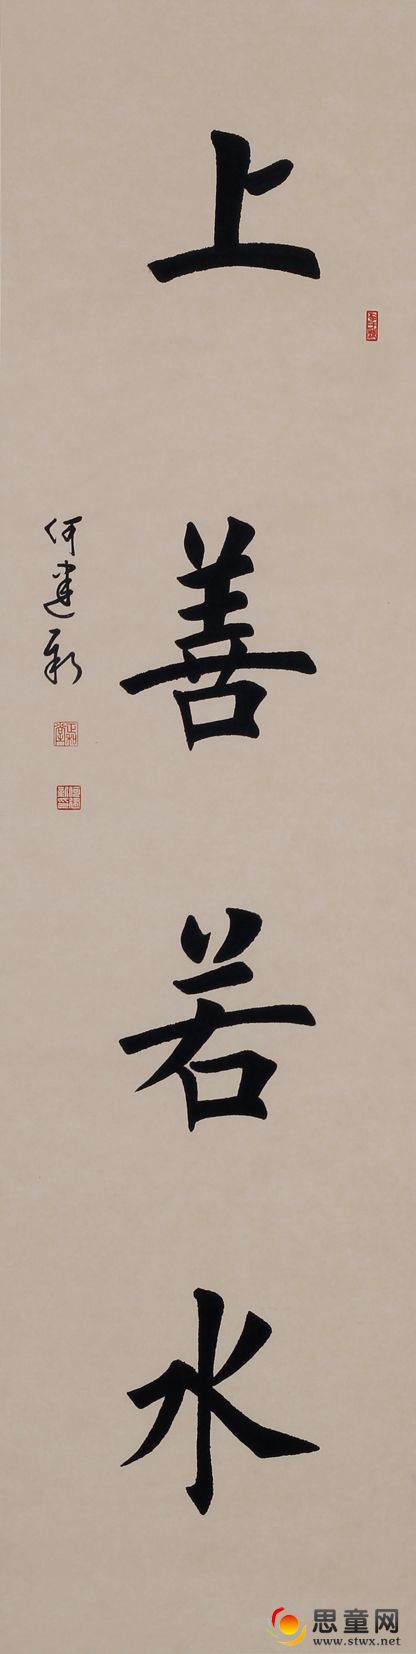 上善若水
何建新
思童网
www.stwx.net